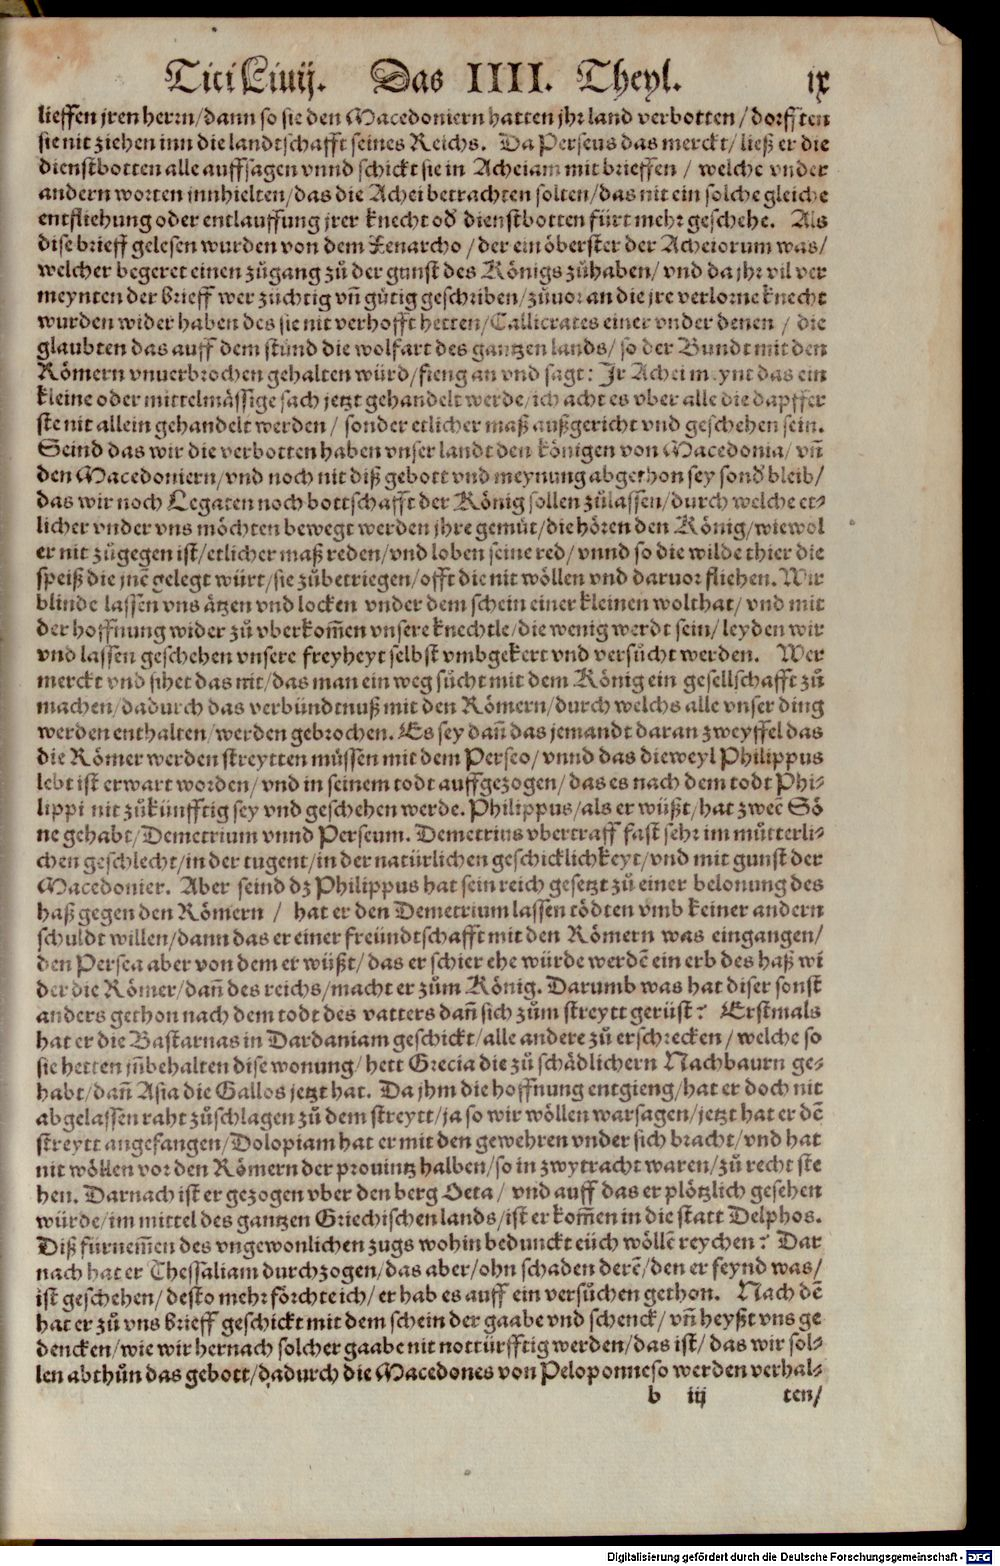 Titi Liuij. Das IIII. Theyl. ix
lieffen jren herrn/dann so sie den Macedoniern hatten jhr land verbotten/dorfften
sie nit ziehen inn die landtschafft seines Reichs. Da Perseus das merckt/ließ er die
dienstbotten alle auffsagen vnnd schickt sie in Acheiam mit brieffen / welche vnder
andern worten jnnhielten/das die Achei betrachten solten/das nit ein solche gleiche
entfliehung oder entlauffung jrer knecht od̕ dienstbotten fürt mehr geschehe. Als
dise brieff gelesen wurden von dem Xenarcho/der ein öberster der Acheiorum was/
welcher begeret einen zůgang zů der gunst des Königs zůhaben/vnd da jhr vil ver
meynten der brieff wer züchtig vñ gütig geschriben/zůuor an die jre verlorne knecht
wurden wider haben des sie nit verhofft hetten/Callicrates einer vnder denen / die
glaubten das auff dem stůnd die wolfart des gantzen lands/so der Bundt mit den
Römern vnuerbrochen gehalten würd/fieng an vnd sagt: Jr Achei meynt das ein
kleine oder mittelmässige sach jetzt gehandelt werde/ich acht es vber alle die dapffer
ste nit allein gehandelt werden / sonder etlicher maß außgericht vnd geschehen sein.
Seind das wir die verbotten haben vnser landt den königen von Macedonia/ vñ
den Macedoniern/vnd noch nit diß gebott vnd meynung abgethon sey sond̕ bleib/
das wir noch Legaten noch bottschafft der König sollen zůlassen/durch welche et-
licher vnder vns möchten bewegt werden jhre gemüt/die hören den König/wiewol
er nit zůgegen ist/etlicher maß reden/vnd loben seine red/vnnd so die wilde thier die
speiß die jnẽ gelegt würt/sie zůbetriegen/offt die nit wöllen vnd daruor fliehen. Wir
blinde lassen vns ätzen vnd locken vnder dem schein einer kleinen wolthat/vnd mit
der hoffnung wider zů vberkom̃en vnsere knechtle/die wenig werdt sein/leyden wir
vnd lassen geschehen vnsere freyheyt selbst vmbgekert vnd versůcht werden. Wer
merckt vnd sihet das nit/das man ein weg sůcht mit dem König ein gesellschafft zů
machen/dadurch das verbündtnuß mit den Römern/durch welchs alle vnser ding
werden enthalten/werden gebrochen. Es sey dañ das jemandt daran zweyffel das
die Römer werden streytten müssen mit dem Perseo/vnnd das dieweyl Philippus
lebt ist erwart worden/vnd in seinem todt auffgezogen/das es nach dem todt Phi-
lippi nit zůkünfftig sey vnd geschehen werde. Philippus/als er wüßt/hat zweẽ Sö
ne gehabt/Demetrium vnnd Perseum. Demetrius vbertraff fast sehr im můtterli-
chen geschlecht/in der tugent/in der natürlichen geschicklichkeyt/vnd mit gunst der
Macedonier. Aber seind dz Philippus hat sein reich gesetzt zů einer belonung des
haß gegen den Römern / hat er den Demetrium lassen tödten vmb keiner andern
schuldt willen/dann das er einer freündtschafft mit den Römern was eingangen/
den Persea aber von dem er wüßt/das er schier ehe würde werdẽ ein erb des haß wi
der die Römer/dañ des reichs/macht er zům König. Darumb was hat diser sonst
anders gethon nach dem todt des vatters dañ sich zům streytt gerüst? Erstmals
hat er die Bastarnas in Dardaniam geschickt/alle andere zů erschrecken/welche so
sie hetten jñbehalten dise wonung/hett Grecia die zů schädlichern Nachbaurn ge-
habt/dañ Asia die Gallos jetzt hat. Da jhm die hoffnung entgieng/hat er doch nit
abgelassen raht zůschlagen zů dem streytt/ja so wir wöllen warsagen/jetzt hat er dẽ
streytt angefangen/Dolopiam hat er mit den gewehren vnder sich bracht/vnd hat
nit wöllen vor den Römern der prouintz halben/so in zwytracht waren/zů recht ste
hen. Darnach ist er gezogen vber den berg Oeta/ vnd auff das er plötzlich gesehen
würde/im mittel des gantzen Griechischen lands/ist er kom̃en in die statt Delphos.
Diß fürnem̃en des vngewonlichen zugs wohin beduncket eüch wöllẽ reychen? Dar
nach hat er Thessaliam durchzogen/das aber/ohn schaden derẽ/den er feynd was/
ist geschehen/desto mehr förchte ich/er hab es auff ein versůchen gethon. Nach dẽ
hat er zů vns brieff geschickt mit dem schein der gaabe vnd schenck/vñ heyßt vns ge
dencken/wie wir hernach solcher gaabe nit nottürfftig werden/das ist/das wir sol-
len abthůn das gebott/dadurch die Macedones von Peloponneso werden verhal-
b iij ten/
Digitalisierung gefördert durch die Deutsche Forschungsgemeinschaft - DFG